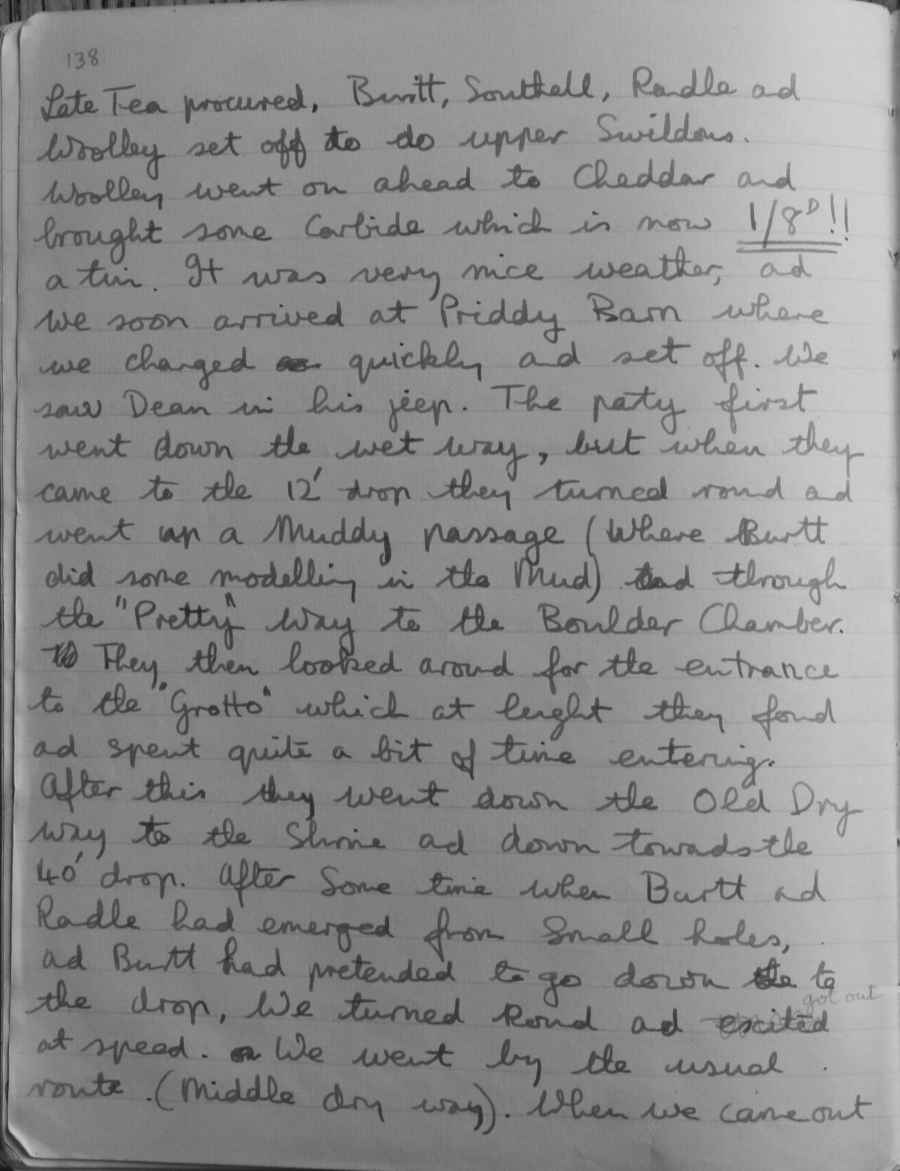 138
Late Tea procured, Burtt, Southell, Radle ad
Woolley set off to do upper Swildons.
Woolley went on ahead to Cheddar and
brought some Carbide which is now 1/8ᴰ!!
a tin. It was very nice weather, ad
we soon arrived at Priddy Barn where
we changed quickly ad set off. We
saw Dean in his jeep. The paty first
went down the wet way, but when they
came to the 12' drop they turned round ad
went up a Muddy passage (Where Burtt
did some modelling in the Mud) ad through
the "Pretty" Way to the Boulder Chamber.
They then looked around for the entrance
to the "Grotto" which at lenght they fond
ad spent quite a bit of time entering.
After this they went down the Old Dry
way to the Shrine ad down towads the
40' drop. After Some time when Burtt ad
Radle had emerged from Small holes,
ad Burtt had pretended to go down to
the drop, We turned Round ad excited got out
at speed. We went by the usual
route. (Middle dry way). When we came out